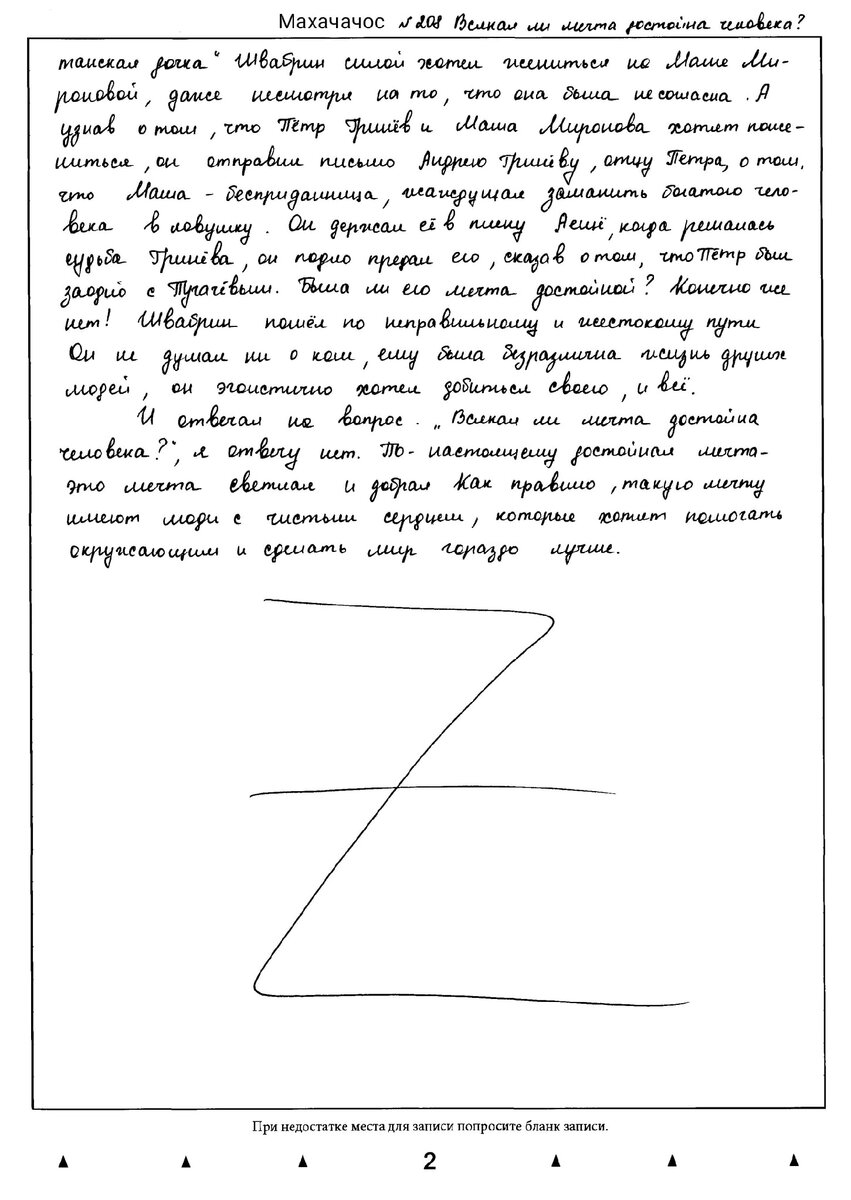 Махачачос №208 Всякая ли мечта достойна человека?
танская дочка" Швабрин силой хотел жениться на Маше Ми-
роновой, даже несмотря на то, что она была не согласна. А
узнав о том, что Пётр Гринёв и Маша Миронова хотят поже-
ниться, он отправил письмо Андрею Гринёву, отцу Петра, о том,
что Маша - бесприданница, жаждущая заманить богатого чело-
века в ловушку. Он держал её в плену А ещё, когда решалась
судьба Гринёва, он подло предал его, сказав о том, что Пётр был
заодно с Пугачёвым. Была ли его мечта достойной? Конечно же
нет! Швабрин пошёл по неправильному и жестокому пути
Он не думал ни о ком, ему была безразлична жизнь других
людей, он эгоистично хотел добиться своего, и всё.
И отвечая на вопрос. „Всякая ли мечта достойна
человека?", я отвечу нет. По-настоящему достойная мечта-
это мечта светлая и добрая Как правило, такую мечту
имеют люди с чистым сердцем, которые хотят помогать
окружающим и сделать мир гораздо лучше.
При недостатке места для записи попросите бланк записи.
2